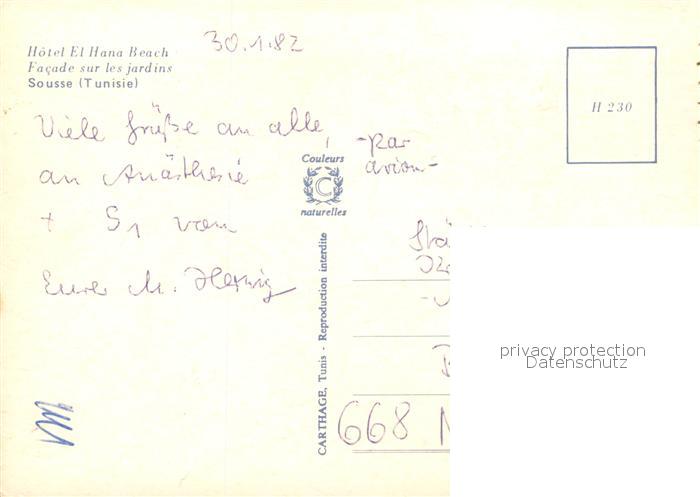 Hôtel El Hana Beach
Façade sur les jardins
Sousse (Tunisie)
30.1.82
H 230
Viele Grüße an alle,
an Anästhesie
+ S1 vom
Eurer M. Herwig
-par
avion-
Couleurs
C
naturelles
CARTHAGE, Tunis - Reproduction interdite
Stä
668 N
privacy protection
Datenschutz